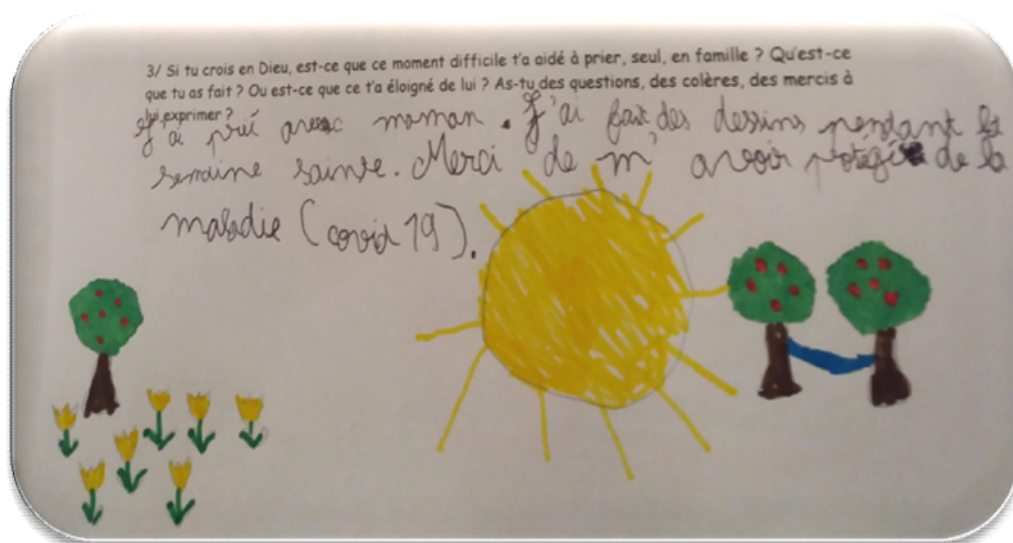 3/ Si tu crois en Dieu, est-ce que ce moment difficile t'a aidé à prier, seul, en famille ? Qu'est-ce
que tu as fait ? Ou est-ce que ce t'a éloigné de lui ? As-tu des questions, des colères, des mercis à
lui exprimer ?
J'ai prié avec maman. J'ai fait des dessins pendant la
semaine sainte. Merci de m'avoir protégé de la
maladie (covid 19).